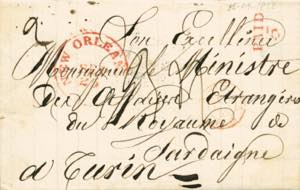 Son Excellence
Monsieur le Ministre
des Affaires Etrangères
du Royaume de
Sardaigne
a Turin
NEW ORLEANS
PAID